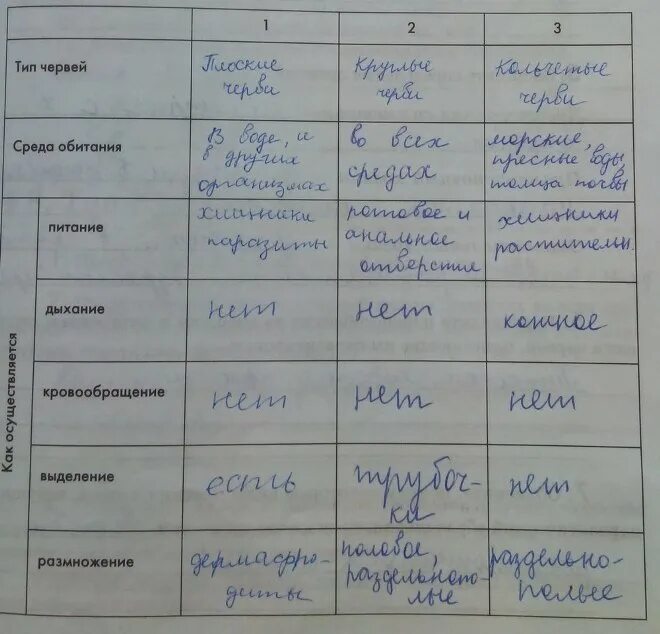 1 2 3
Тип червей
Плоские
черви
Круглые
черви
Кольчетые
черви
Среда обитания
В воде, и
в других
организмах
во всех
средах
морские,
пресные воды,
толща почвы
Как осуществляется
питание
хищники
паразиты
ротовое и
анальное
отверстия
хищники
растительн.
дыхание
нет
нет
кожное
кровообращение
нет
нет
нет
выделение
есть
трубоч-
ки
нет
размножение
гермафро-
диты
половое,
раздельнопо-
лые
раздельно-
полые